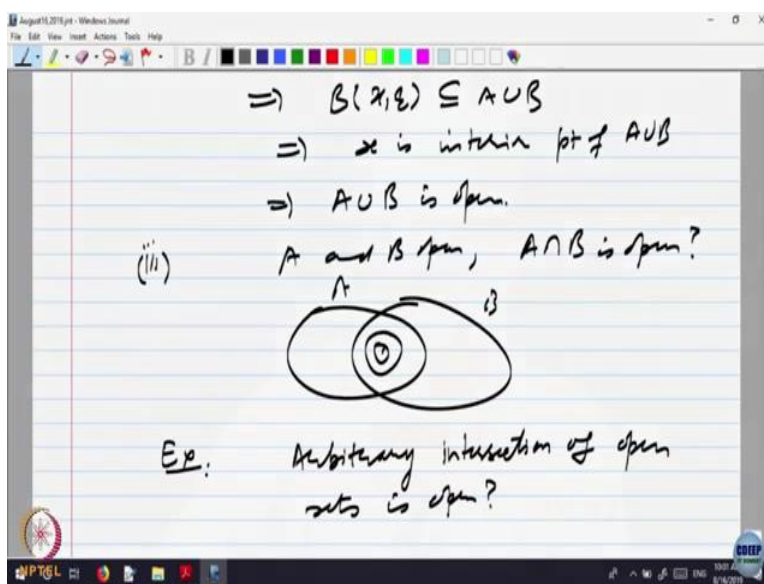 August16,2019.jnt - Windows Journal
File Edit View Insert Actions Tools Help
B I
=) B(x,ε) ⊆ A∪B
=) x is interior pt of A∪B
=) A∪B is open.
(iii) A and B open, A∩B is open?
A B
Ex: Arbitrary intersection of open
sets is open?
NPTEL
CDEEP
ENG
10:01 AM
8/16/2019